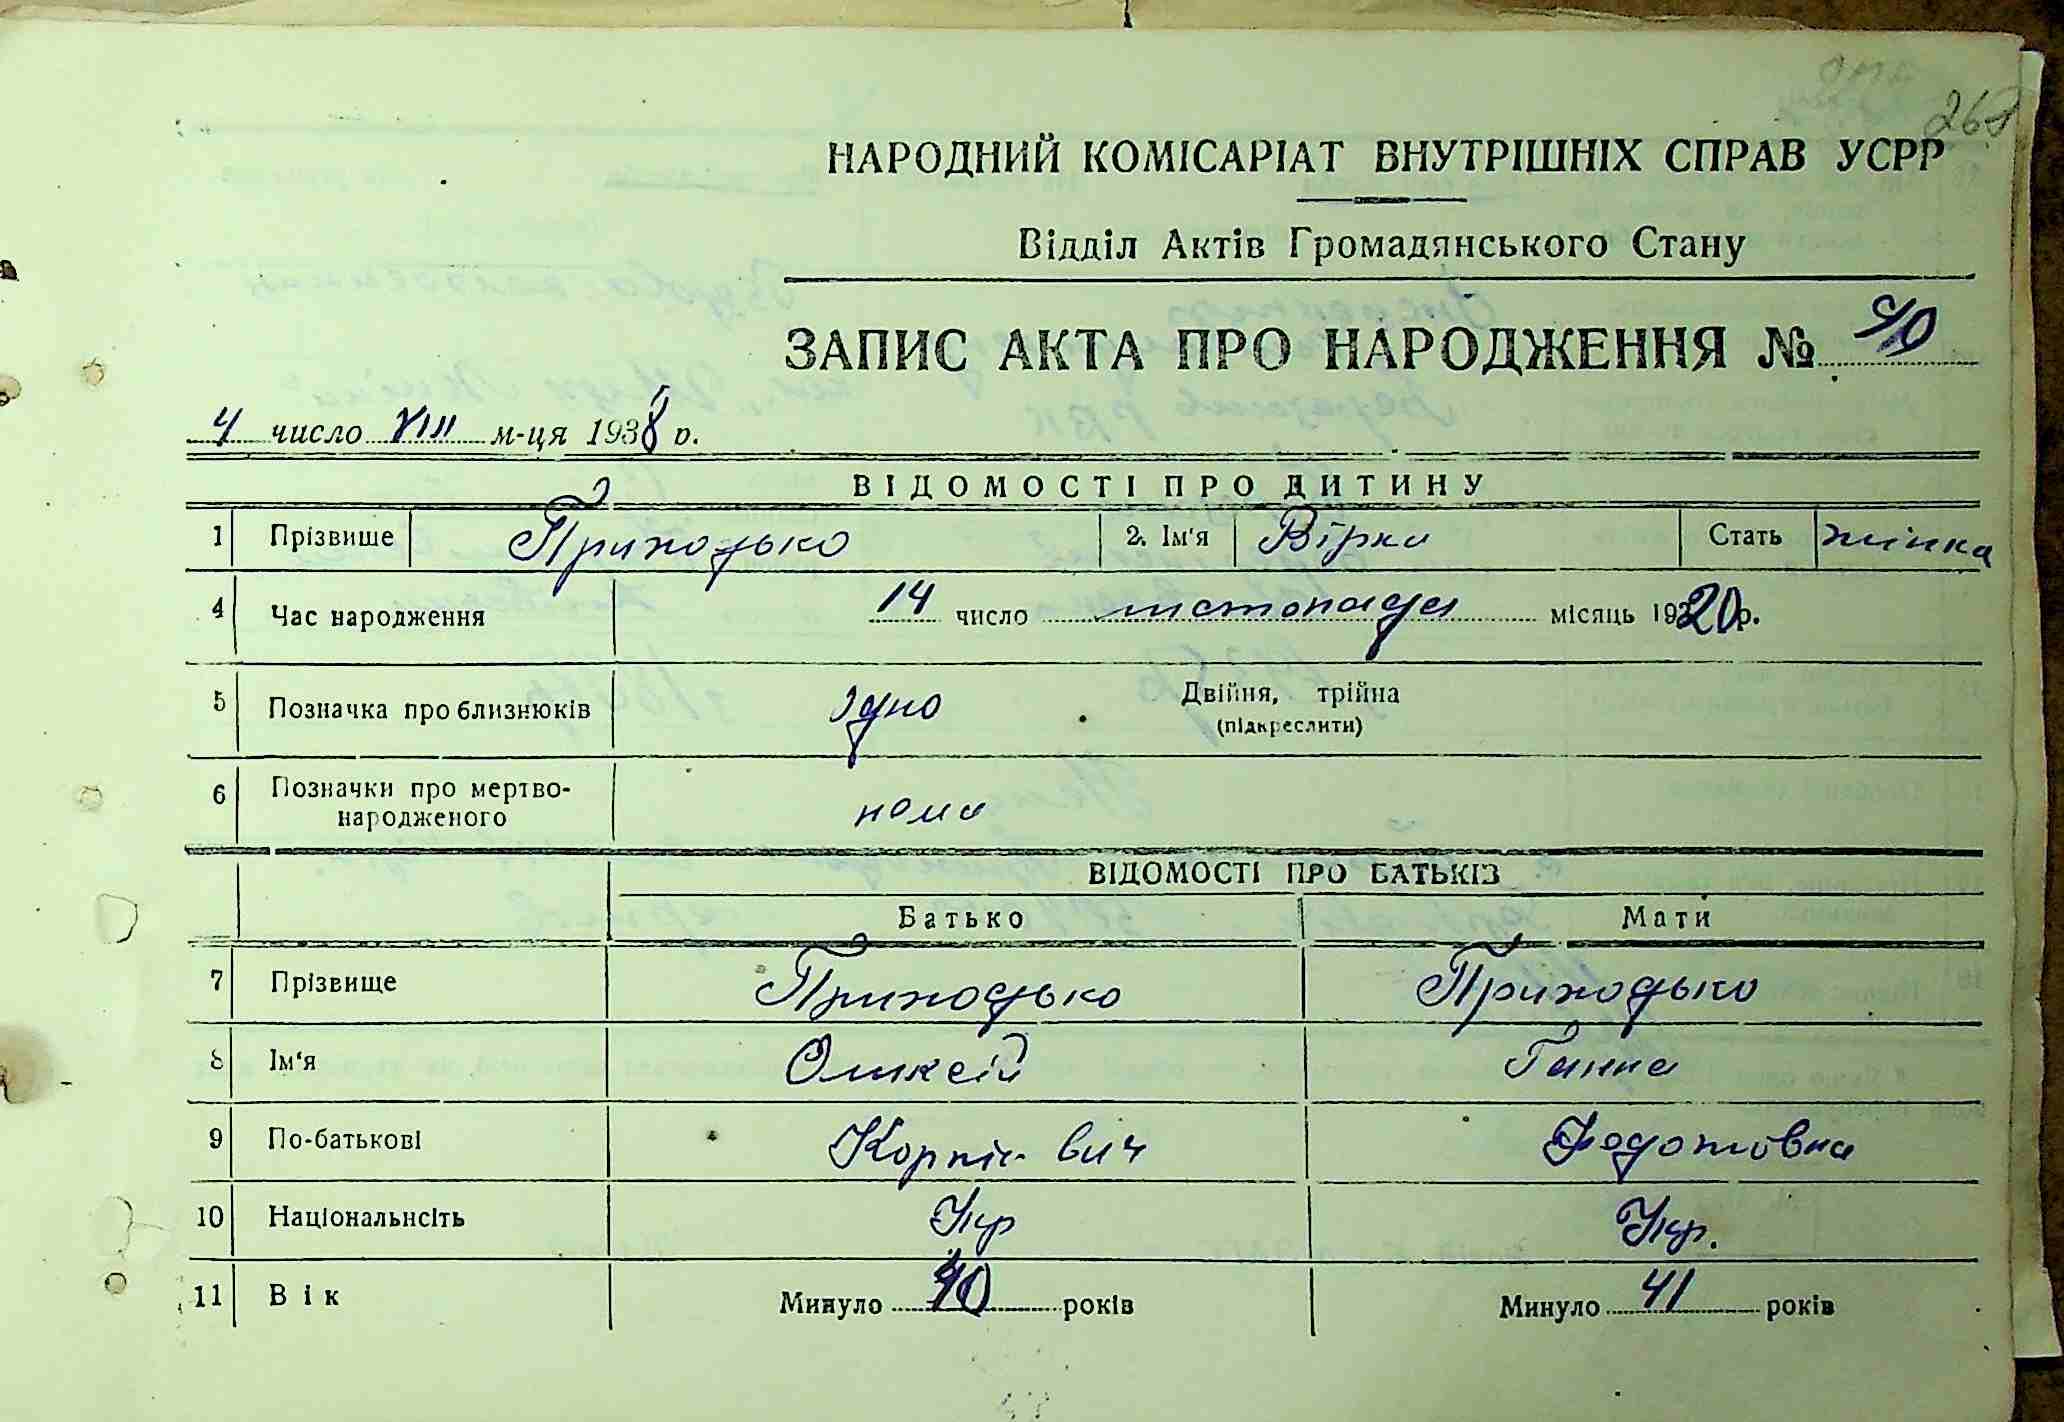 268
НАРОДНИЙ КОМІСАРІАТ ВНУТРІШНІХ СПРАВ УСРР
Відділ Актів Громадянського Стану
ЗАПИС АКТА ПРО НАРОДЖЕННЯ №
4 число VIII м-ця 1938 р.
ВІДОМОСТІ ПРО ДИТИНУ
1 Прізвище Приходько 2. Ім'я Вірка Стать жінка
4 Час народження 14 число листопада місяць 1920 р.
5 Позначка про близнюків Двійня, трійна
(підкреслити)
6 Позначки про мертво-
народженого нема
ВІДОМОСТІ ПРО БАТЬКІВ
Батько Мати
7 Прізвище Приходько Приходько
8 Ім'я Оликсій Ганна
9 По-батькові Федотовна
10 Національнсіть Укр Укр.
11 Вік Минуло 40 років Минуло 41 років